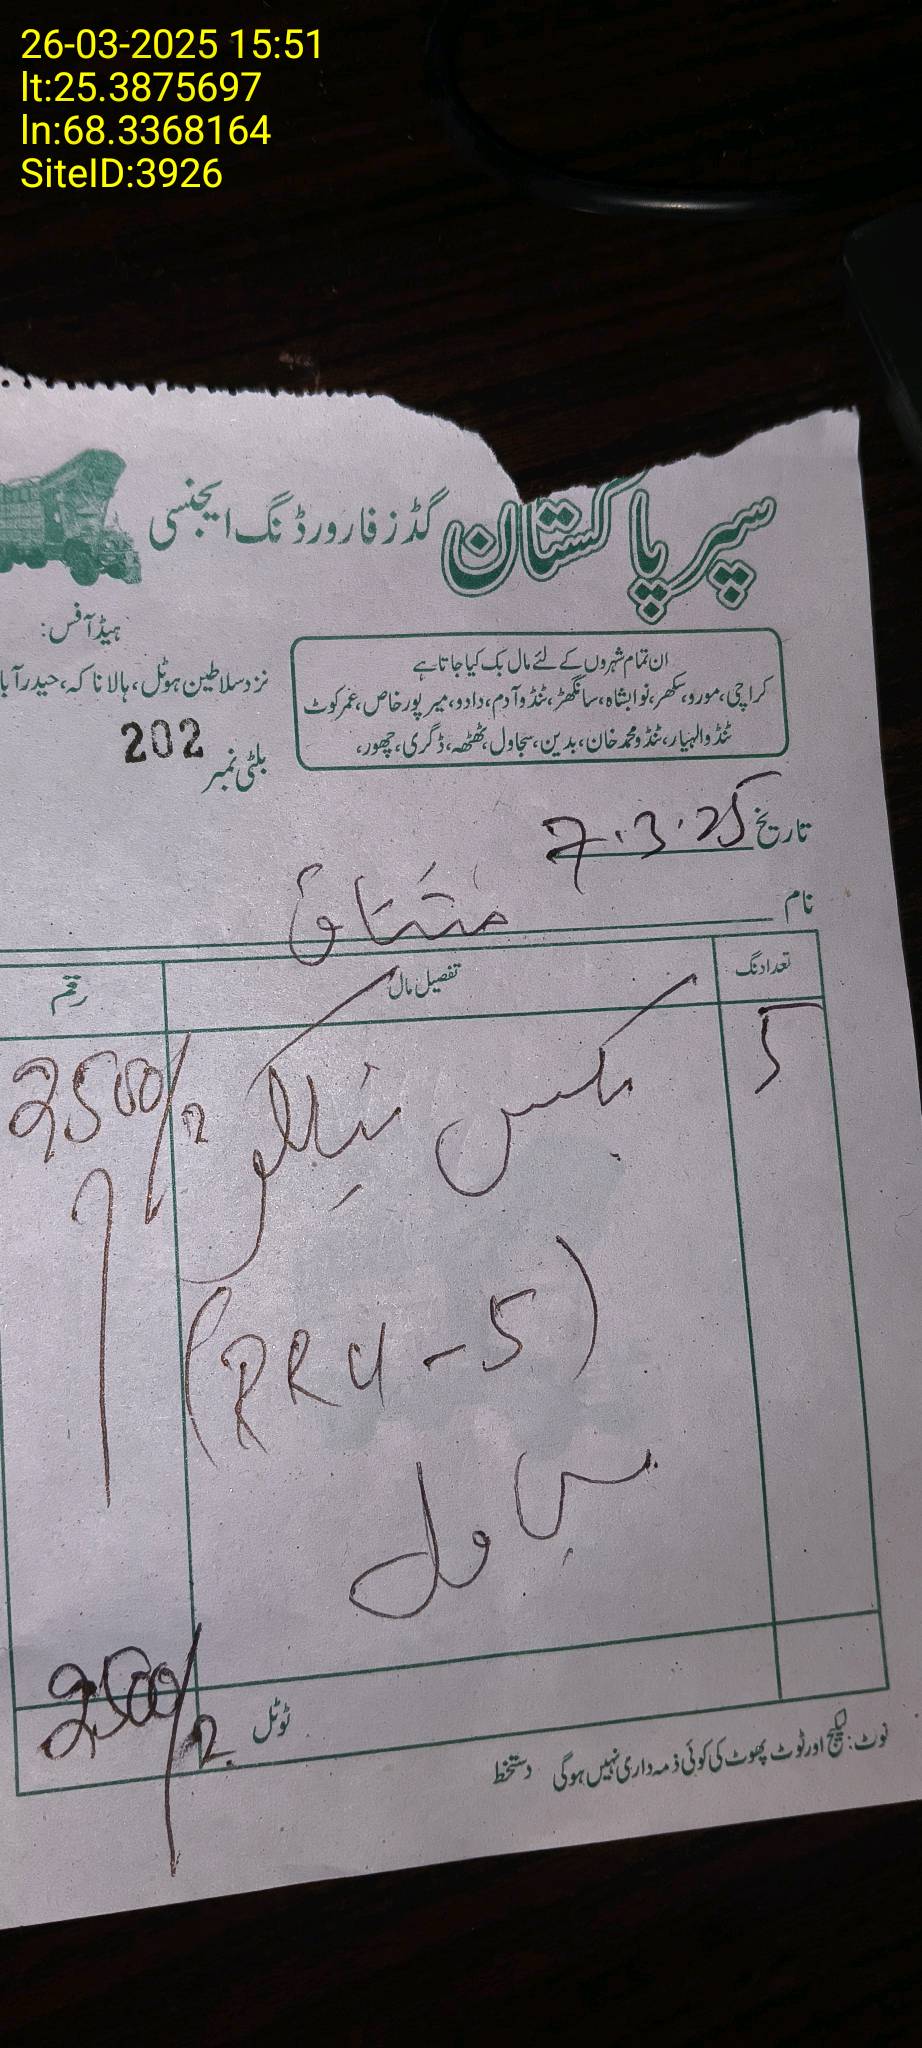 26-03-2025 15:51
lt:25.3875697
ln:68.3368164
SiteID:3926
سپر پاکستان گڈز فارورڈنگ ایجنسی
ہیڈ آفس:
نزد سلاطین ہوٹل، ہالا ناکہ، حیدرآبا
ان تمام شہروں کے لئے مال بک کیا جاتا ہے
کراچی، مورو، سکھر، نوابشاہ، سانگھڑ، ٹنڈو آدم، دادو، میرپور خاص، عمرکوٹ
ٹنڈو الہیار، ٹنڈو محمد خان، بدین، سجاول، ٹھٹھہ، ڈگری، چھور،
بلٹی نمبر 202
تاریخ 7.3.25
نام مشتاق
تعداد نگ تفصیل مال رقم
5 بکس 2500/
(RR4-5)
سجاول
ٹوٹل 2500/
نوٹ: لیکیج اور ٹوٹ پھوٹ کی کوئی ذمہ داری نہیں ہوگی دستخط